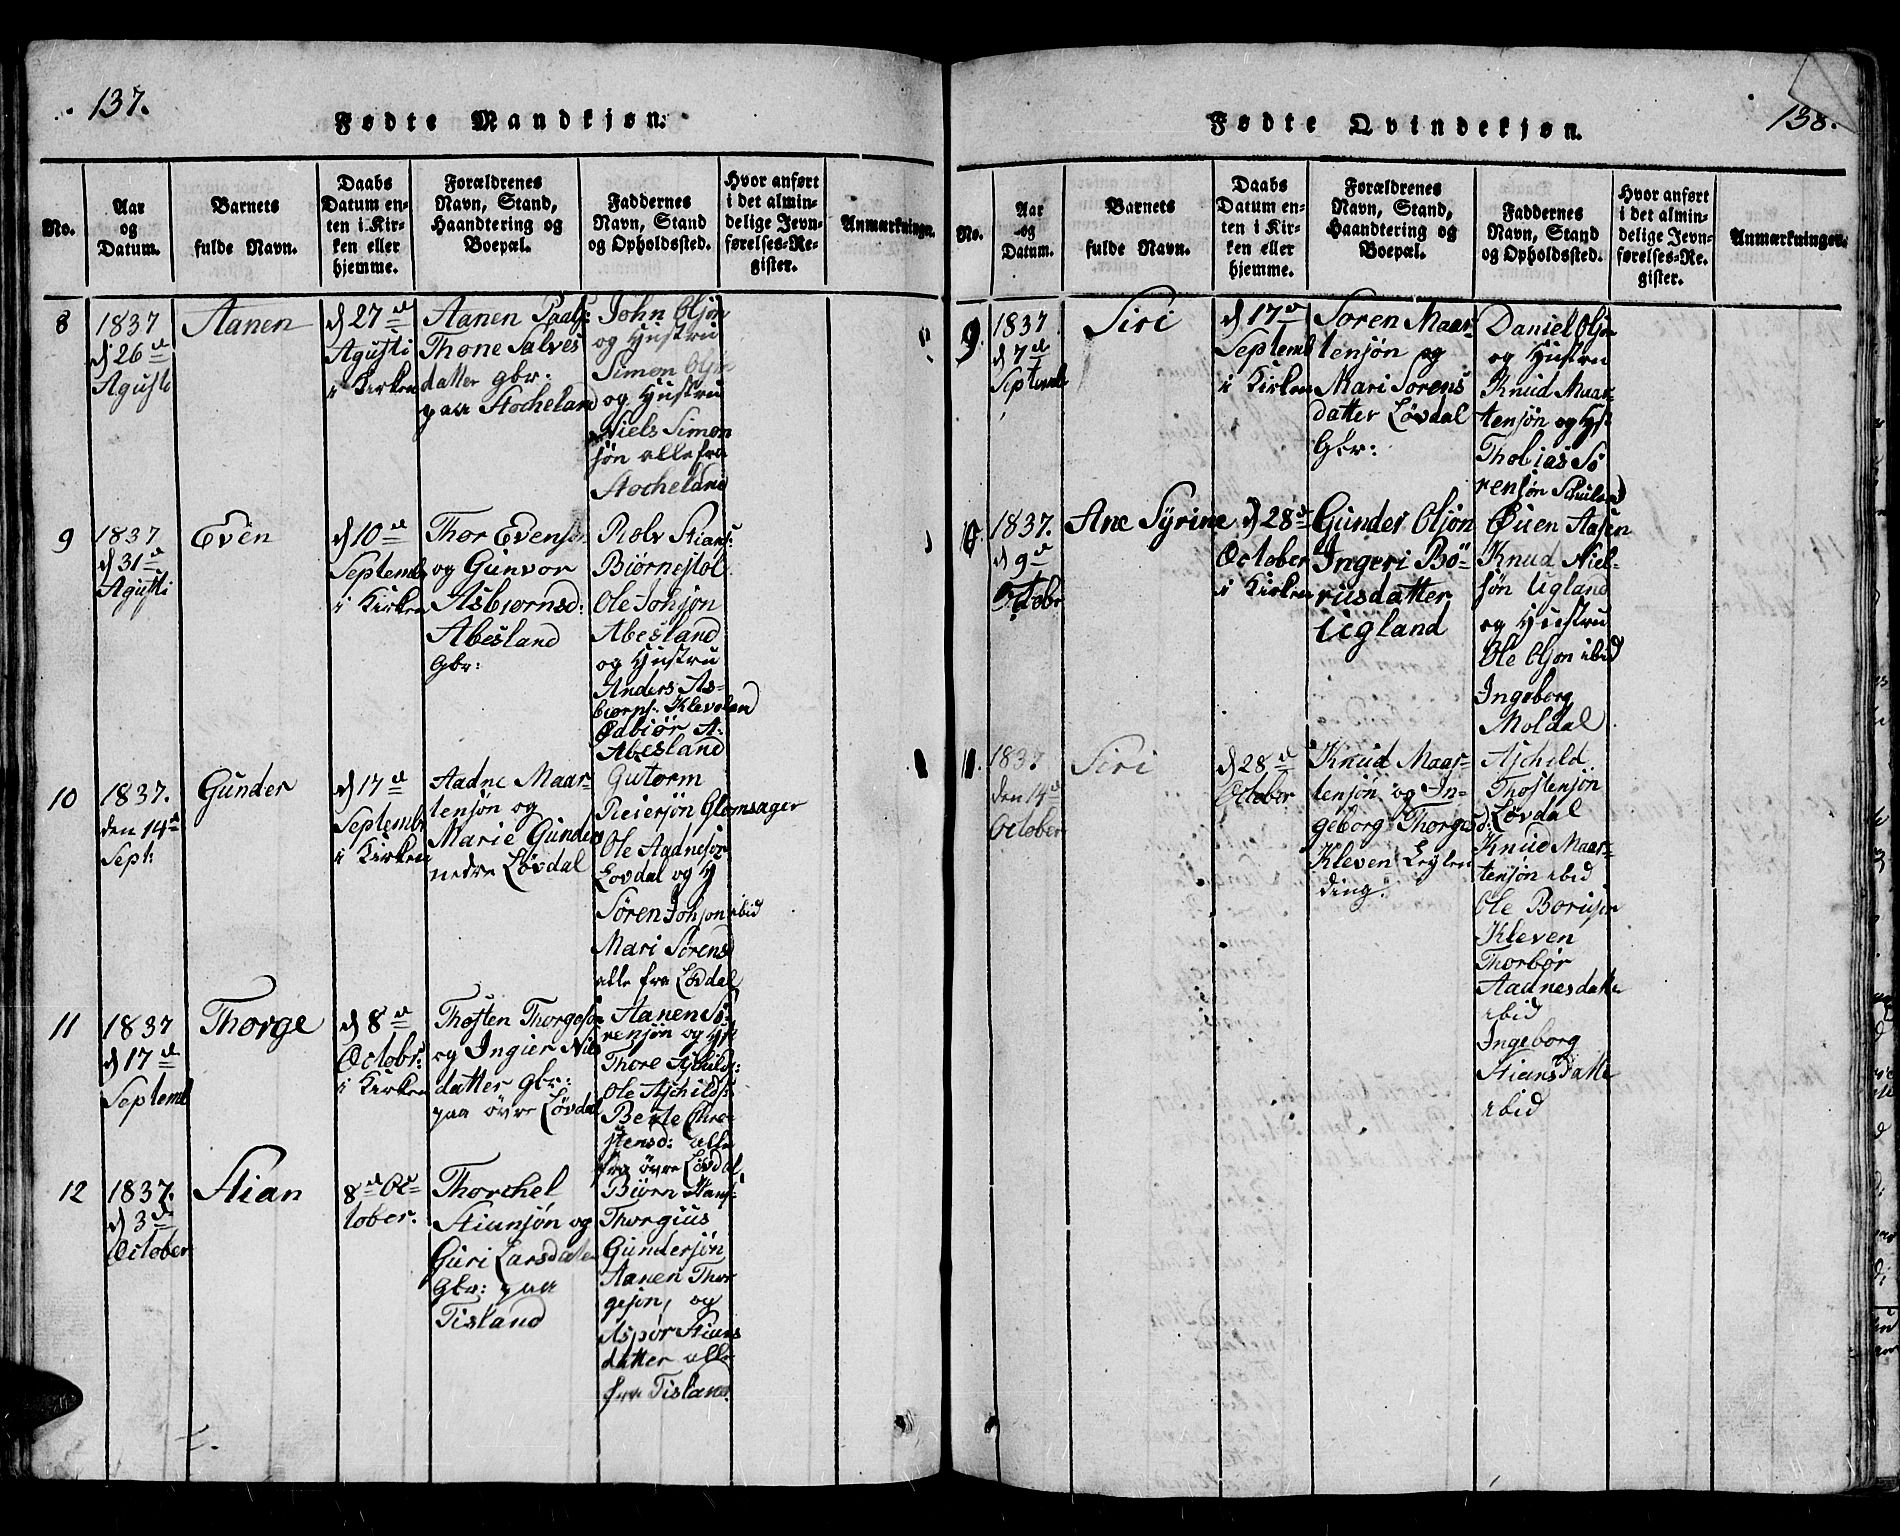 137.
Fødte Mandkjøn.
No.
Aar
og
Datum.
Barnets
fulde Navn.
Daabs
Datum en-
ten i Kir-
ken eller
hjemme.
Forældrenes
Navn, Stand,
Haandtering og
Boepæl.
Faddernes
Navn, Stand
og Opholdssted.
Hvor anført
i det almin-
delige Jevn-
førelses-Re-
gister.
Anmærkninger.
8
1837
d 26d
Agusti
Aanen
d 27d
Agusti
i Kirken
Aanen Paals:
Thone Salves
datter gbr:
paa Stocheland
John Olsøn
og Hustru
Simon Olsøn
og Hustru
Niels Simon
søn alle fra
Stocheland
9
1837
d 31d
Agusti
Even
d 10d
Septemb
i Kirken
Thor Evens
og Gunvor
Asbiørnsd:
Abesland
Gbr:
Rolv Stians:
Biørnestøl
Ole Johsøn
Abesland
og Hustru
Anders As-
biørns: Kleveland
Ødbiør A:
Abesland
10
1837.
den 14d
Sept:
Gunder
d 17d
Septembr
i Kirken
Aadne Maar
tensøn og
Marie Gunders
nedre Løvdal
Gutorm
Reiersøn Glomsager
Ole Aadnesøn
Lovdal og H
Søren Johson ibid
Mari Sørens
alle fra Løvdal
11
1837
d 17d
Septemb
Thorge
d 8d
Octobr:
i Kirken
Thosten Thorgesøn
og Ingier Nils
datter Gbr:
paa øvre Løvdal
Aanen Sö
rensøn og Hst
Thore Aschilds:
Ole Aschilds:
Berte Thro
stensd: alle
fra øvre Løvdal
12
1837.
d 3d
October
Stian
8d Oc
tober.
Thorchel
Stiansøn og
Guri Larsdatter
Gbr: paa
Tisland
Biörn Hans:
Thorgius
Gundersøn
Aanen Thor
gesøn, og
Aspør Stians
datter alle
fra Tisland
138.
Fødte Qvindekjøn.
No.
Aar
og
Datum.
Barnets
fulde Navn.
Daabs
Datum en-
ten i Kir-
ken eller
hjemme.
Forældrenes
Navn, Stand,
Haandtering og
Boepæl.
Faddernes
Navn, Stand
og Opholdssted.
Hvor anført
i det almin-
delige Jevn-
førelses-Re-
gister.
Anmærkninger.
9
1837
d 7d
Septemb
Siri
d 17d
Septemb
i Kirken
Soren Maar
tensøn og
Mari Sorens
datter Løvdal
Gbr:
Daniel Olsøn
og Hustru
Knud Maar-
tensøn og Hst
Thobias Sö
rensøn
10.
1837.
d 9d
Octobr
Ane Syrine
d 28d
October
i Kirken
Gunder Olsön
Ingeri Bö-
rusdatter
Uegland
Øuen Aasen
Knud Niel-
søn Ugland
og Hustru
Ole Olson ibid
Ingeborg
Moldal
11.
1837
den 14d
October
Siri
d 28d
October
Knud Maar-
tensøn og In-
geborg Thorges d:
Kleven Leylen
ding.
Aschild
Thostensøn
Løvdal
Knud Maar-
tensøn ibid
Ole Borusøn
Kleven
Thorbør
Aadnesdatte
ibid
Ingeborg
Stians Datte
ibid